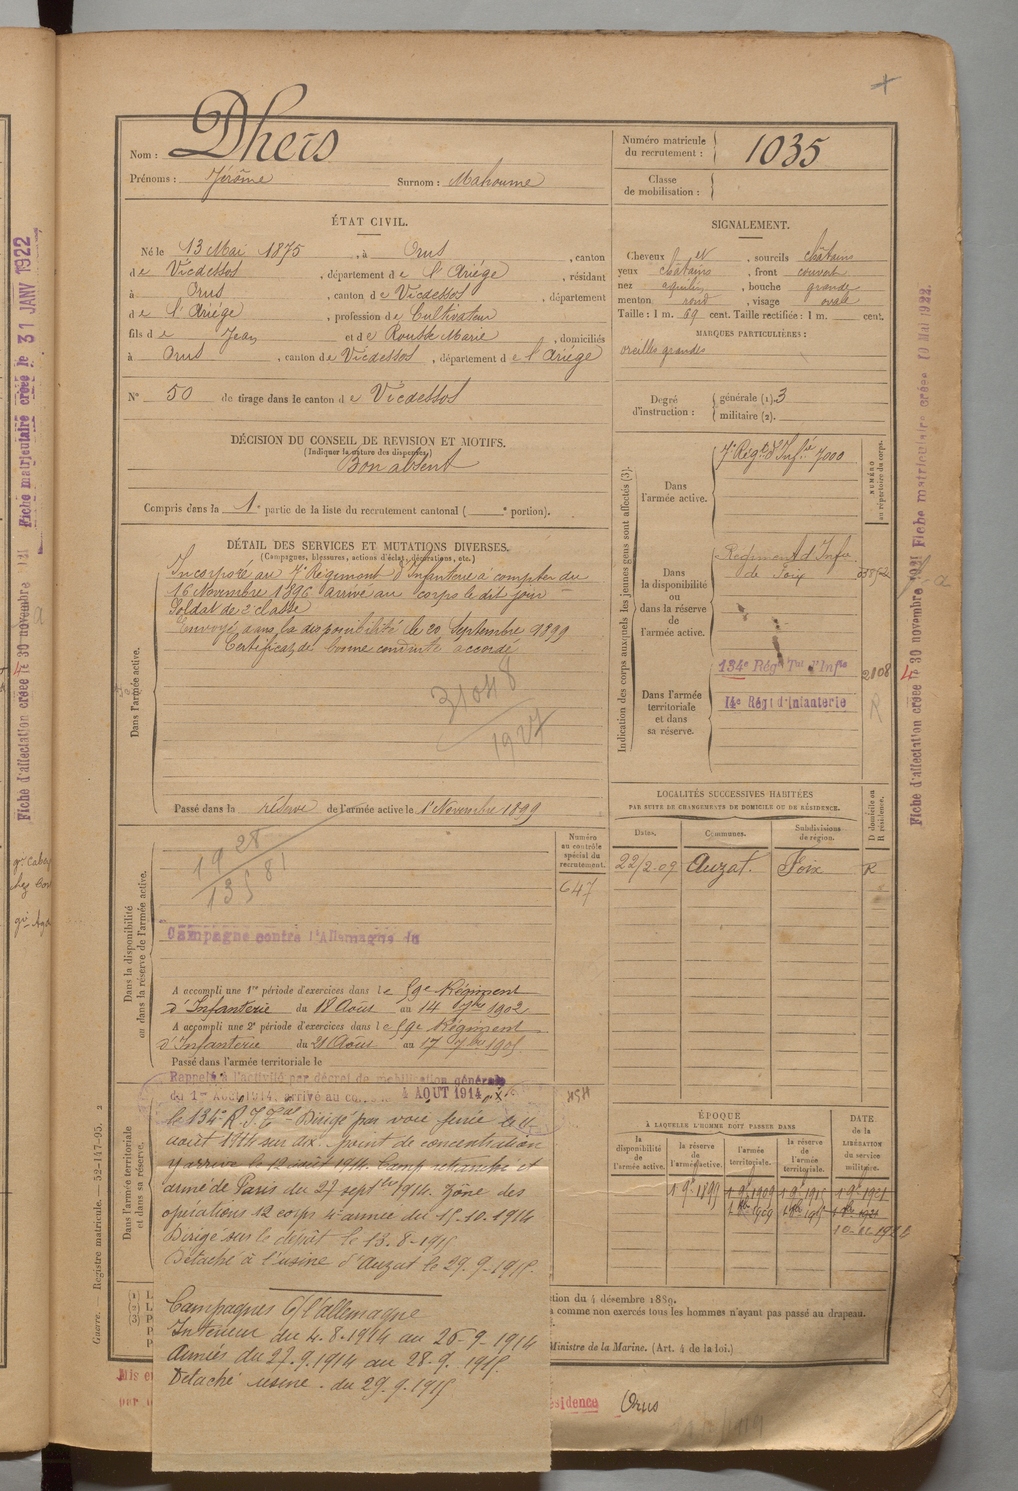 Nom : Dhers
Prénoms : Jérôme Surnom : Mahoume
Numéro matricule du recrutement : 1035
Classe de mobilisation :
ÉTAT CIVIL.
Né le 13 Mai 1875, à Orus, canton
de Vicdessos, département de l'Ariége, résidant
à Orus, canton de Vicdessos, département
de l'Ariége, profession de Cultivateur
fils de Jean et de Rousse Marie, domiciliés
à Orus, canton de Vicdessos, département de l'Ariége
N° 50 de tirage dans le canton de Vicdessos
SIGNALEMENT.
Cheveux et sourcils châtains
yeux châtains, front couvert
nez aquilin, bouche grande
menton rond, visage ovale
Taille : 1 m. 69 cent. Taille rectifiée : 1 m. cent.
MARQUES PARTICULIÈRES :
oreilles grandes
Degré d'instruction : générale (1). 3
militaire (2).
DÉCISION DU CONSEIL DE REVISION ET MOTIFS.
(Indiquer la nature des dispenses.)
Bon absent
Compris dans la 1e partie de la liste du recrutement cantonal ( e portion).
DÉTAIL DES SERVICES ET MUTATIONS DIVERSES.
(Campagnes, blessures, actions d'éclat, décorations, etc.)
Dans l'armée active.
Incorporé au 7e Régiment d'Infanterie à compter du
16 Novembre 1896 arrivé au corps le dit jour
Soldat de 2e classe
Envoyé dans la disponibilité le 20 Septembre 1899
Certificat de bonne conduite accordé
31048
1927
Passé dans la réserve de l'armée active le 1er Novembre 1899
Indication des corps auxquels les jeunes gens sont affectés (3).
NUMÉRO au répertoire du corps.
Dans l'armée active.
7e Régt d'Infie 7000
Dans la disponibilité ou dans la réserve de l'armée active.
Régiment d'Infie
de Foix
Dans l'armée territoriale et dans sa réserve.
134e Rég Tal d'Infie 2108
14e Régt d'Infanterie R
LOCALITÉS SUCCESSIVES HABITÉES
PAR SUITE DE CHANGEMENTS DE DOMICILE OU DE RÉSIDENCE.
D domicile ou R résidence.
Dates. Communes. Subdivisions de région.
22/2-09 Auzat. Foix R
Dans la disponibilité ou dans la réserve de l'armée active.
Numéro au contrôle spécial du recrutement.
647
19 28
13581
Campagne contre l'Allemagne du
A accompli une 1re période d'exercices dans le 59e Régiment
d'Infanterie du 18 Août au 14 7bre 1902
A accompli une 2e période d'exercices dans le 59e Régiment
d'Infanterie du 21 Août au 17 7bre 1905
Passé dans l'armée territoriale le
Dans l'armée territoriale et dans sa réserve.
Rappelé à l'activité par décret de mobilisation générale
du 1er Août 1914, arrivé au corps le 4 AOUT 1914
le 134e R.I.T. Dirigé par voie ferrée le
août 1914 sur dix. point de concentration
y arrive le 12 août 1914. Camp retranché et
armé de Paris du 27 septbre 1914. Zône des
opérations 12 corps 4e armée du 15.10.1914
Dirigé sur le dépôt le 13.8-1915
Détaché à l'usine d'Auzat le 29.9-1915.
Campagnes C/ l'allemagne
Intérieur du 4.8-1914 au 26-9-1914
Armées du 27.9.1914 au 28-9.1915.
Détaché usine. du 29.9.1915
ÉPOQUE
À LAQUELLE L'HOMME DOIT PASSER DANS
la disponibilité de l'armée active. la réserve de l'armée active. l'armée territoriale. la réserve de l'armée territoriale.
DATE de la LIBÉRATION du service militaire.
1 9e 1899 1 9e 1909 1 9e 1915 1 9e 1921
tion du 4 décembre 1889.
à comme non exercés tous les hommes n'ayant pas passé au drapeau.
Ministre de la Marine. (Art. 4 de la loi.)
Mis en
par
ésidence Orus
Guerre. Registre matricule. — 52-147-95. 2
Fiche matriculaire créée le 31 JANV 1922
Fiche d'affectation créée le 30 novembre 1921
Fiche matriculaire créée 10 Mai 1922.
Fiche d'affectation créée le 30 novembre 1921